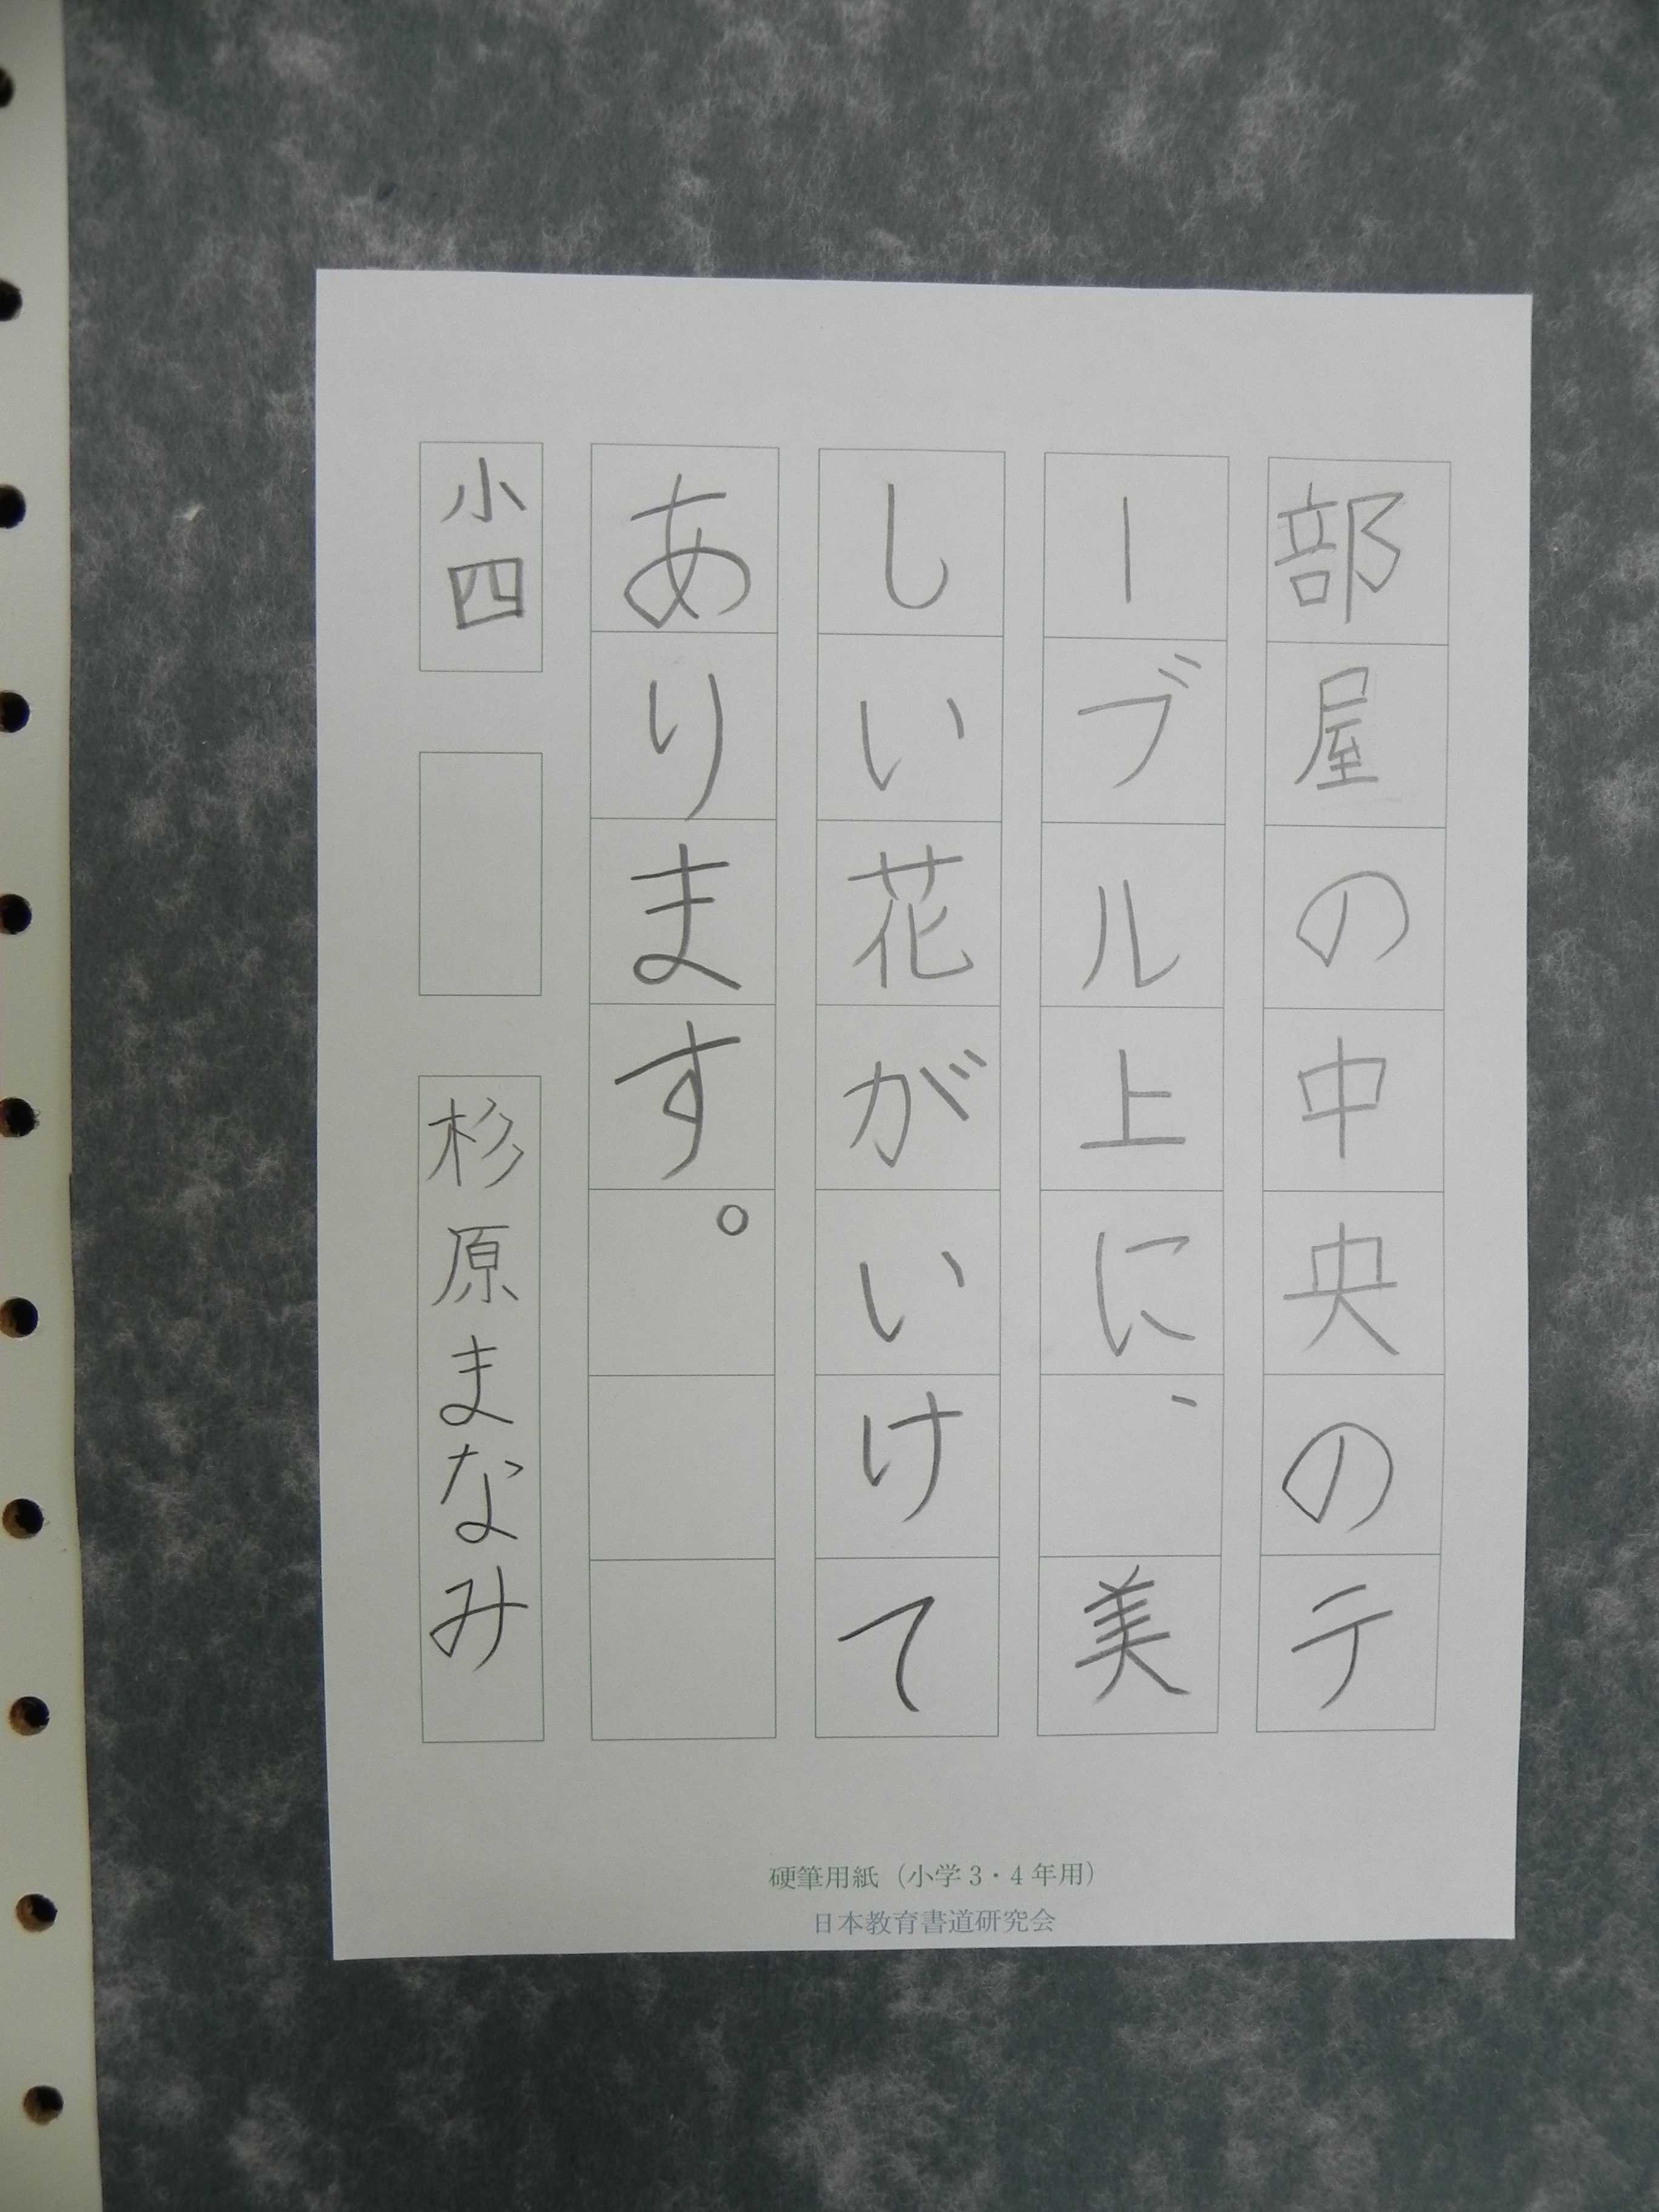 部屋の中央のテ
ーブル上に、美
しい花がいけて
あります。
小四
杉原まなみ
硬筆用紙（小学3・4年用）
日本教育書道研究会